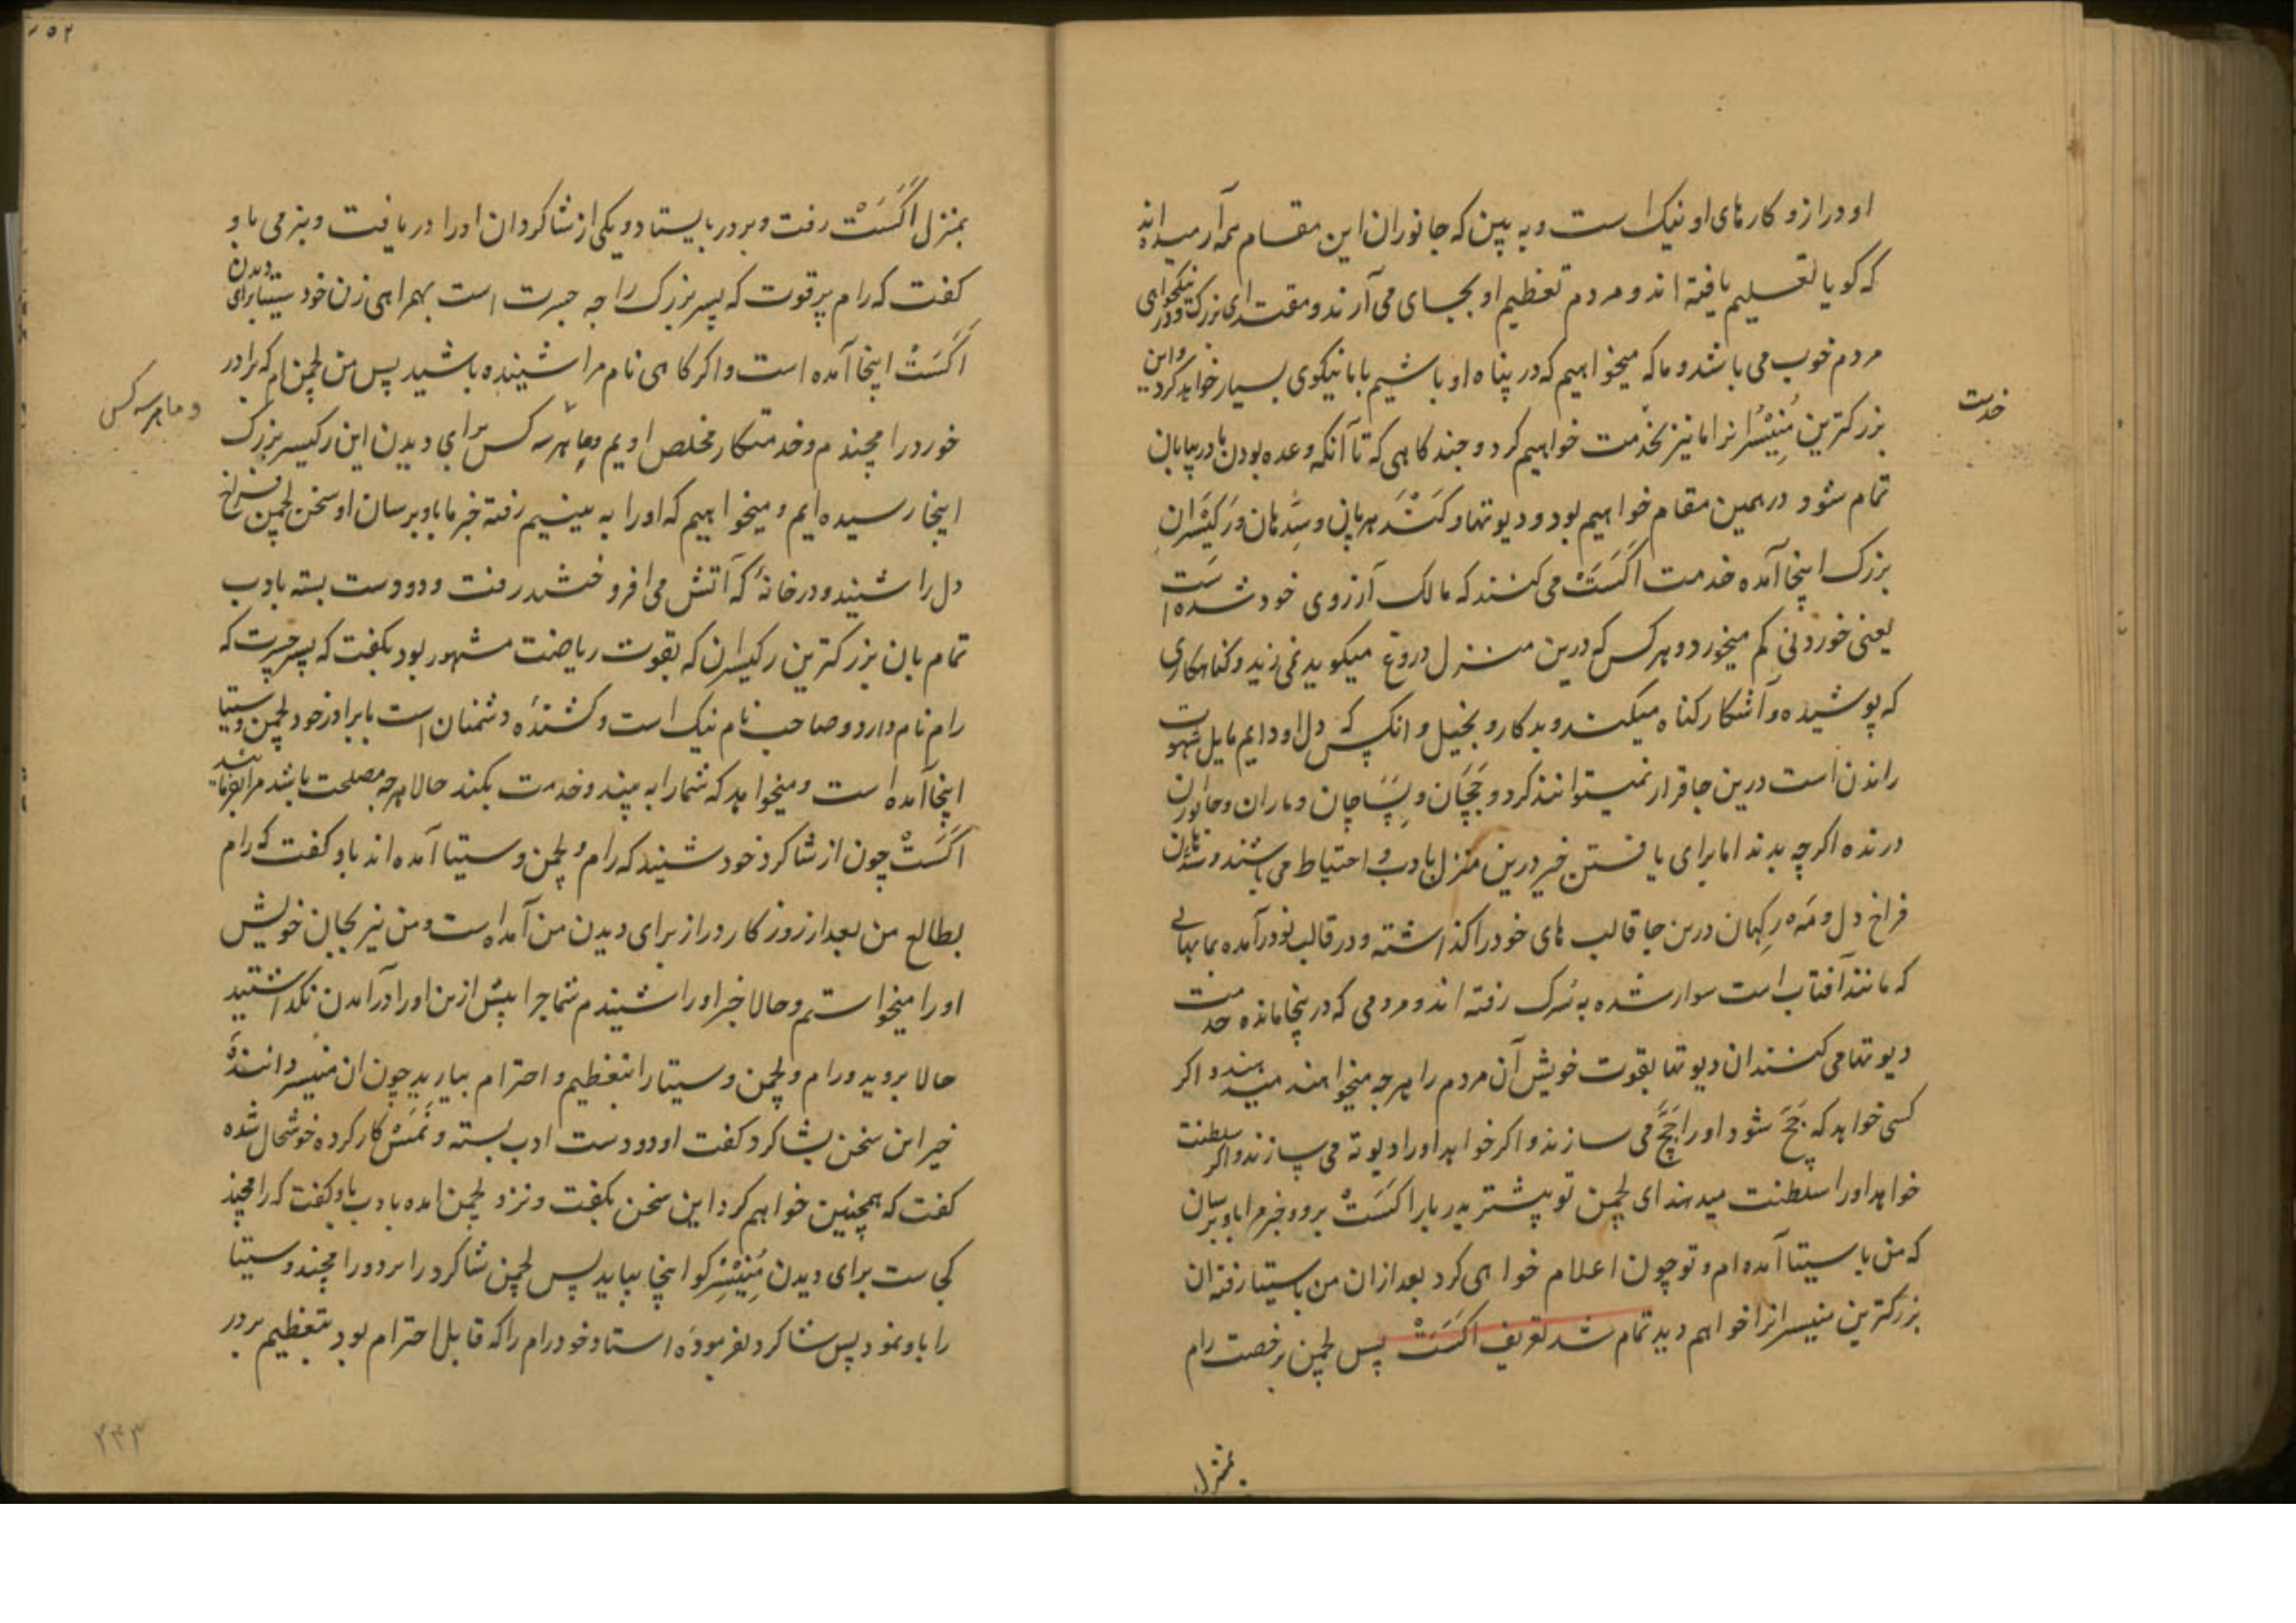 او دراز و کارهای او نیک است و به بین که جانوران این مقام همه آرمیده اند
که گویا تعلیم یافته اند و مردم تعظیم او بجای می آرند و مقتدای بزرگ و در نیکخواهی
مردم خوب می باشد و ما که میخواهیم که در پناه او باشیم با ما نیکوی بسیار خواهد کرد و این
بزرکترین مُنِیْسُرانرا ما نیز بخدمت خواهیم کرد و چند کاهی که تا آنکه وعده بودن ما در بیابان
خدمت
تمام شود درهمین مقام خواهیم بود و دیوتها و کَنْدَهربان و سِدّهان و رَکیْسَران
بزرک اینجا آمده خدمت اَکَسَتْ می کنند که مالک آرزوی خود شده است
یعنی خوردنی کم میخورد و هر کس که درین منزل دروغ میکوید نمی زید و کناهکاری
که پوشیده و آشکار کناه میکند و بدکار و بخیل و انکس که دل او دایم مایل شهوت
راندن است درین جا قرار نمیتوانند کرد و جَچَّان و پِسَاچان و ماران و جانوران
درنده اکرچه بدند اما برای یافتن خیر درین منزل بادب و احتیاط می باشند و سدهان
فراخ دل و مَه رکهان درین جا قالب های خود را کذاشته و در قالب نو درآمده بمابهایی
که مانند آفتاب است سوار شده به سُرک رفته اند و مردمی که درینجا مانده خدمت
دیوتها می کنند ان دیوتها بقوت خویش آن مردم را هرچه میخواهند میدهند و اکر
کسی خواهد که جَچَّ شود او را جَچَّ می سازند و اکر خواهد او را دیوته می سازند و اکر سلطنت
خواهد او را سلطنت میدهند ای لچمن تو پیشتر بدربار اکَسَتْ برو و خبر مرا باو برسان
که من با سیتا آمده ام و تو چون اعلام خواهی کرد بعد ازان من با سیتا رفته ان
بزرکترین منیسرانرا خواهم دید تمام شد تعریف اکَسَتْ پس لچمن برخصت رام
بمنزل
بمنزل اَکَسَتْ رفت و بر در بایستاد و یکی از شاکردان او را دریافت و بنرمی باو
کفت که رام پرقوت که پسر بزرک راجه جسرت است بهمراهی زن خود سیتا برای دیدن
اَکَسَتْ اینجا آمده است و اکر کاهی نام مرا شینده باشید پس من لچمن ام که برادر
خورد رامچندم و خدمتکار مخلص اویم و ما هر سه کس برای دیدن این رکیسر بزرک
و ما هر سه کس
اینجا رسیده ایم و میخواهیم که او را به بینیم رفته خبر ما باو برسان او سخن لچمن فراخ
دل را شنید و درخانهٔ که آتش می افروختند رفت و دو دست بسته بادب
تمام بان بزرکترین رکیسران که بقوت ریاضت مشهور بود بکفت که پسر جسرت که
رام نام دارد و صاحب نام نیک است و کشندهٔ دشمنان است با برادر خود لچمن و سیتا
اینجا آمده است و میخواهد که شما را به بیند و خدمت بکند حالا هرچه مصلحت باشد مرا بفرمایند
اَکَسَتْ چون از شاکرد خود شنید که رام و لچمن و سیتا آمده اند باو کفت که رام
بطالع من بعد از روزکار دراز برای دیدن من آمده است و من نیز بجان خویش
او را میخواستم و حالا خبر او را شنیدم شما چرا پیش از من او را درآمدن نکذاشتید
حالا بروید و رام و لچمن و سیتا را بتعظیم و احترام بیارید چون ان منیسر دانندهٔ
خیر این سخن بشاکرد کفت او دو دست ادب بسته و نَمَسْکار کرده خوشحال شده
کفت که همچنین خواهم کرد این سخن بکفت و نزد لچمن امده بادب باو کفت که رامچند
کجاست برای دیدن مُنِیْسِر کو اینجا بیاید پس لچمن شاکرد را برد و رامچند و سیتا
را باو نمود پس شاکرد بفرمودهٔ استاد خود رام را که قابل احترام بود بتعظیم بر در
۲۴۳